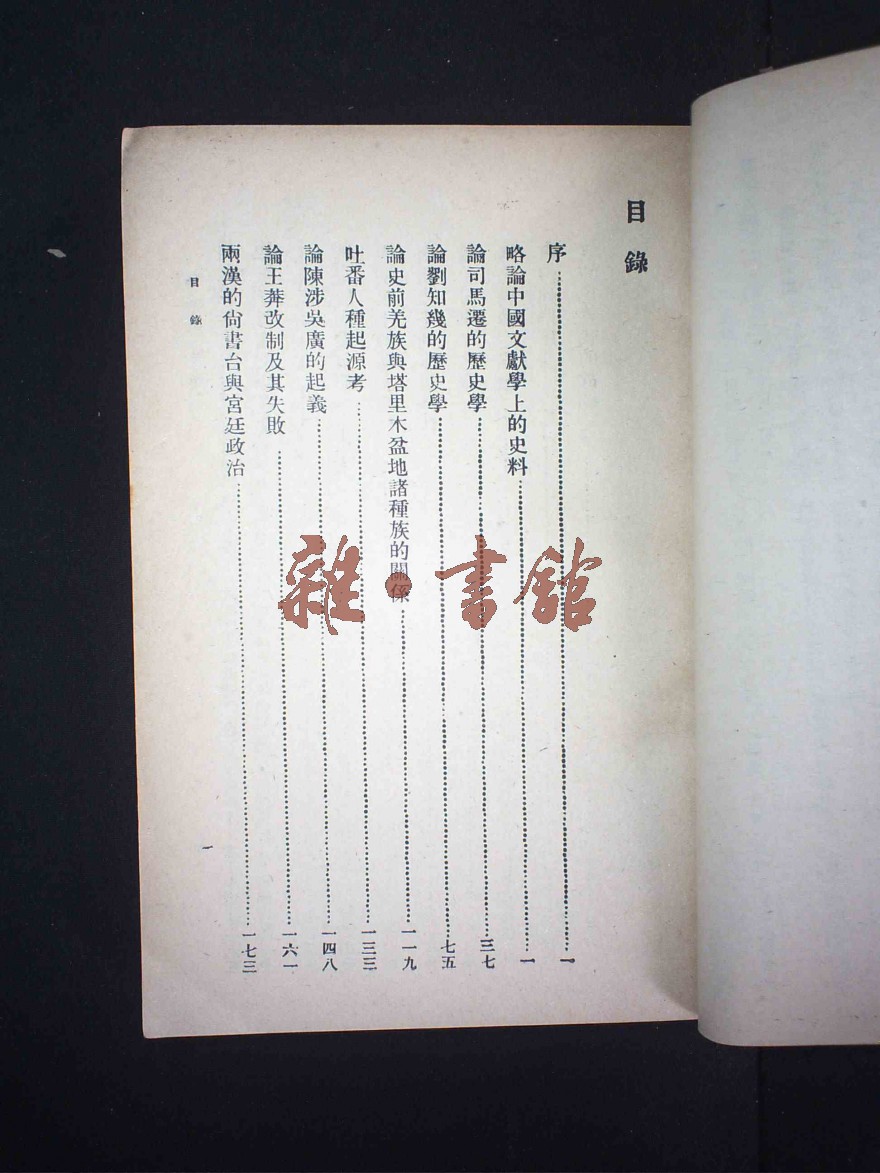 目錄
序一
略論中國文獻學上的史料一
論司馬遷的歷史學三七
論劉知幾的歷史學七五
論史前羌族與塔里木盆地諸種族的關係一一九
吐番人種起源考一三三
論陳涉吳廣的起義一四八
論王莽改制及其失敗一六一
兩漢的尙書台與宮廷政治一七三
目錄
一
雜·書館